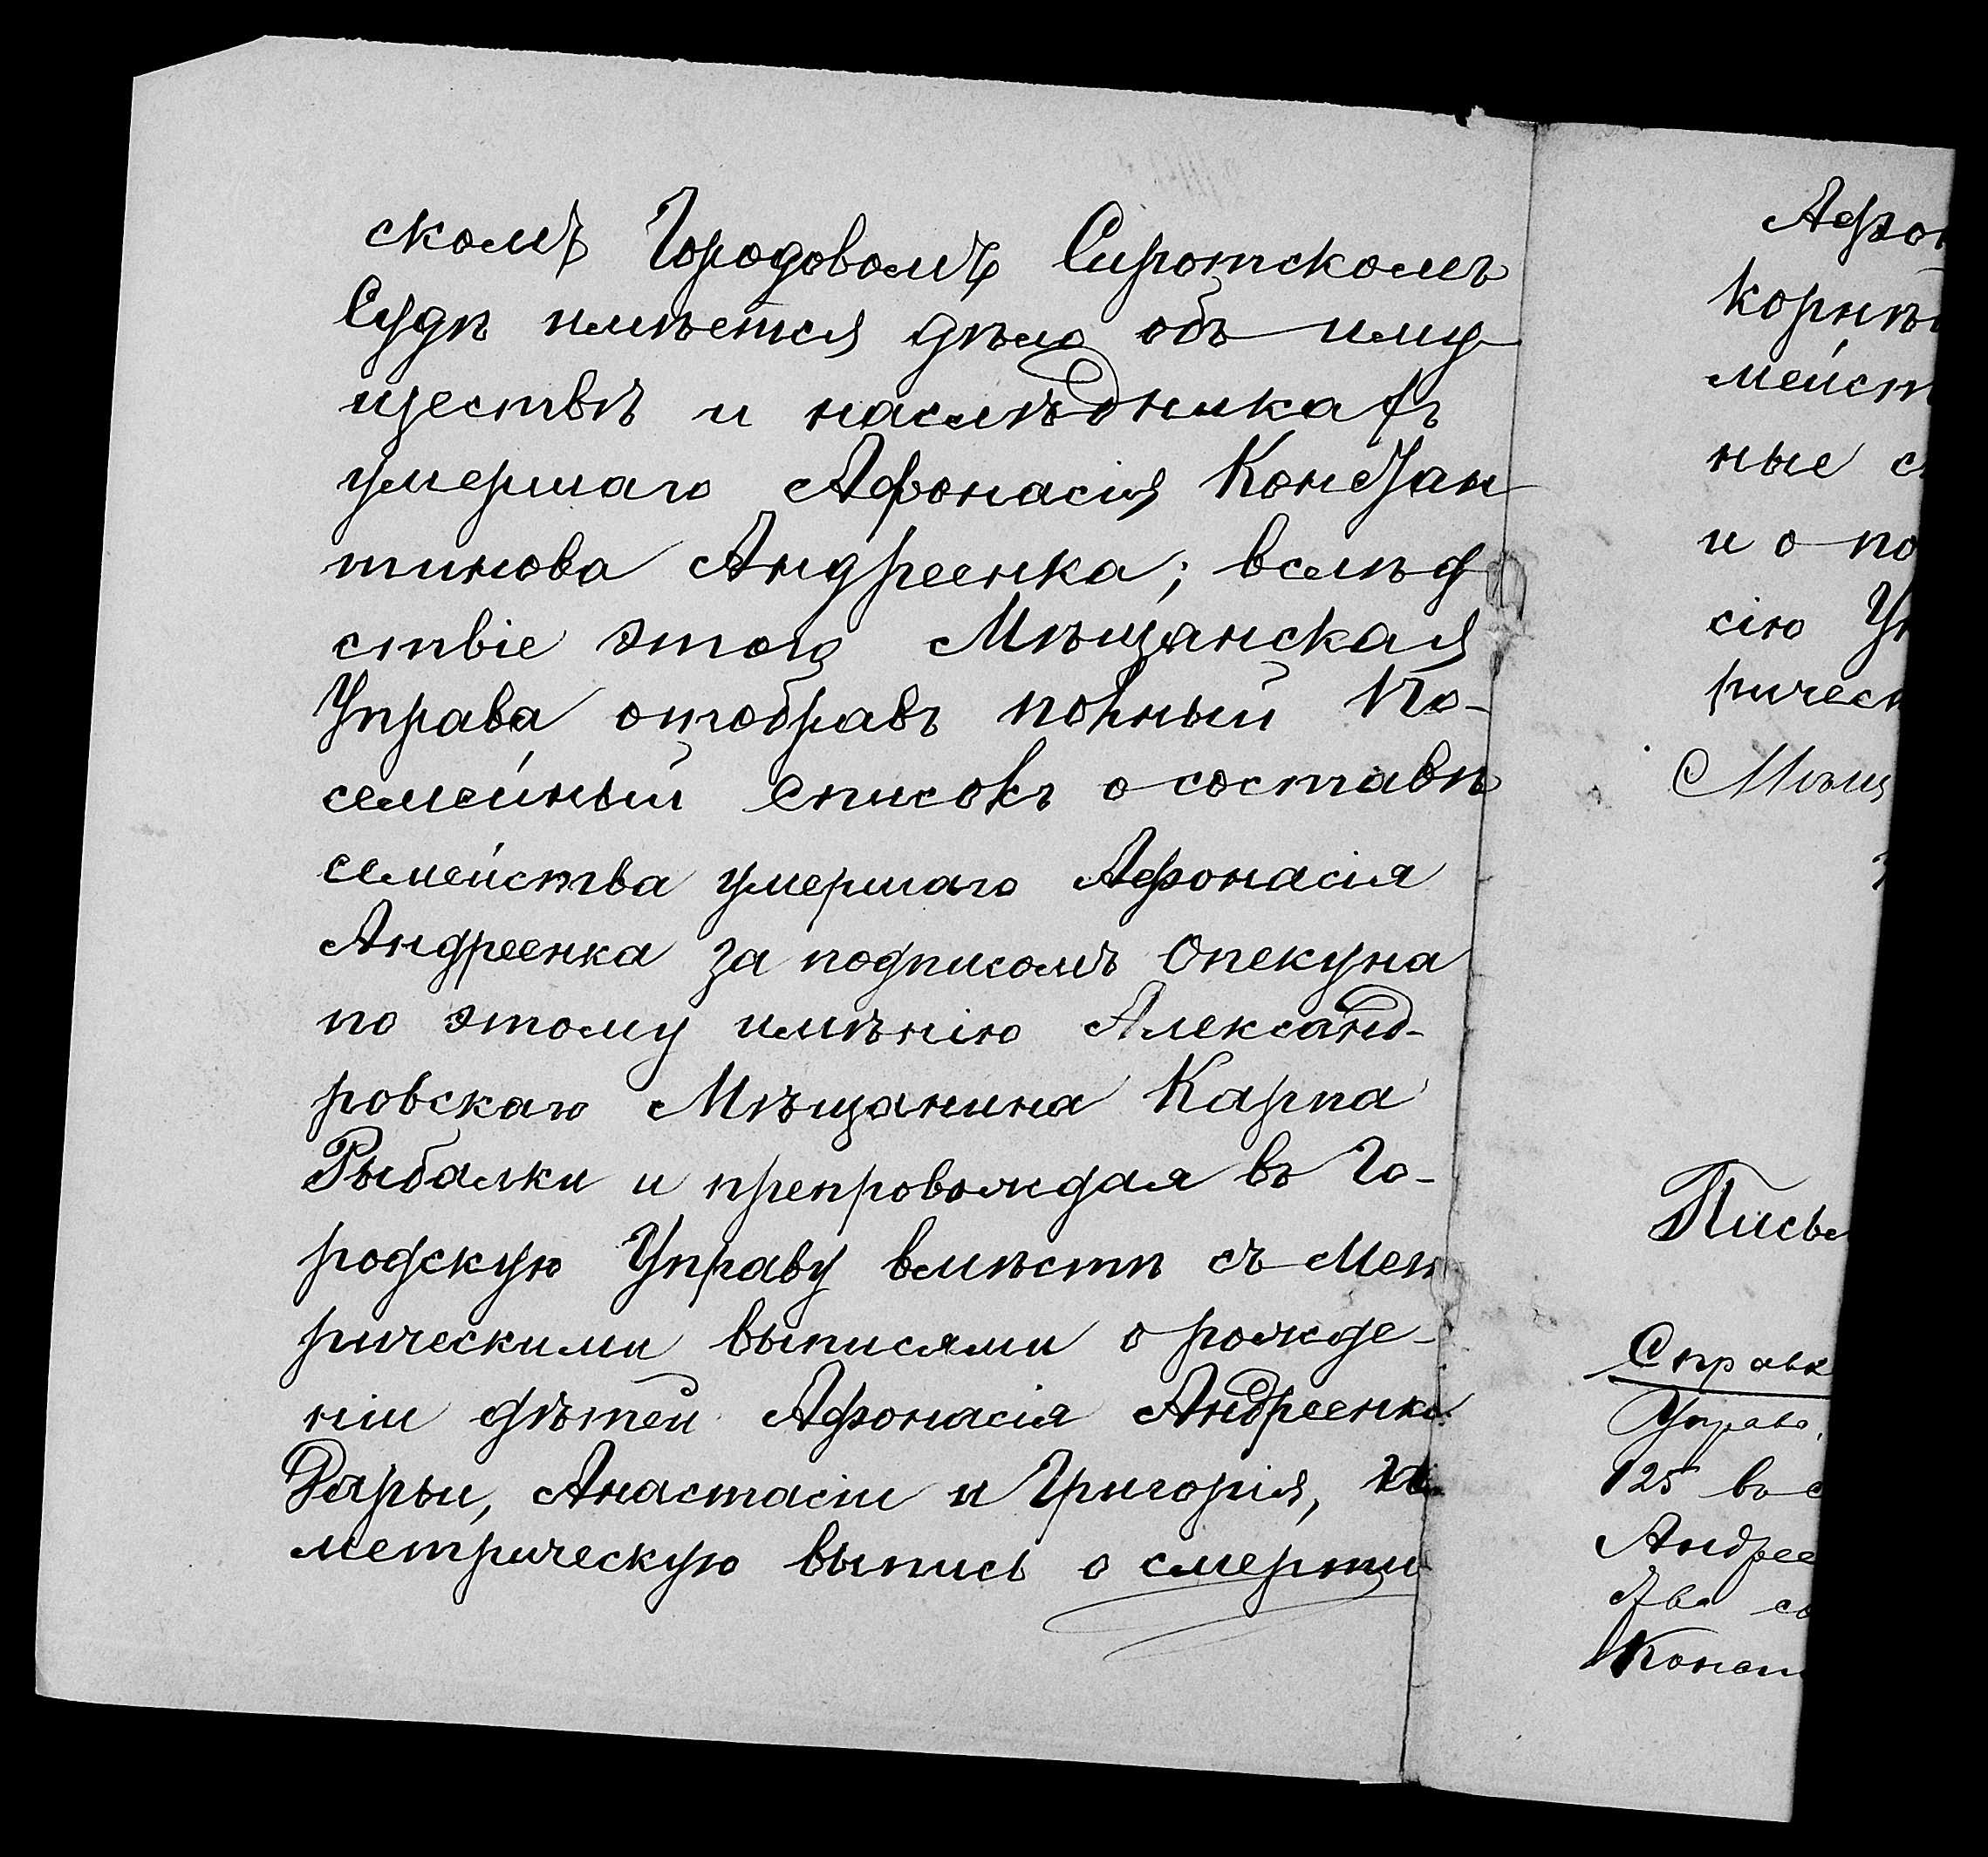 скомъ Городовомъ Сиротскомъ
Судѣ имѣется дѣло объ иму
ществѣ и наслѣдникахъ
умершаго Афонасія Констан
тинова Андреенка; вслѣд
ствіе этого Мѣщанская
Управа отобравъ полный По-
семейный списокъ о составѣ
семейства умершаго Афонасія
Андреенка за подписомъ Опекуна
по этому имѣнію Александ-
ровскаго Мѣщанина Карпа
Рыбалки и препровождая въ Го-
родскую Управу вмѣстѣ съ Мет
рическими выписями о рожде-
ніи дѣтей Афонасія Андреенка
Дарьи, Анастасіи и Григорія, и
метрическую выпись о смерти
Афо
Корнѣ
мейст
ные с
и о по
сію Уп
рическ
Мѣщ
Письм
Справк
Управа
125 въ
Андрее
два съ
Конст